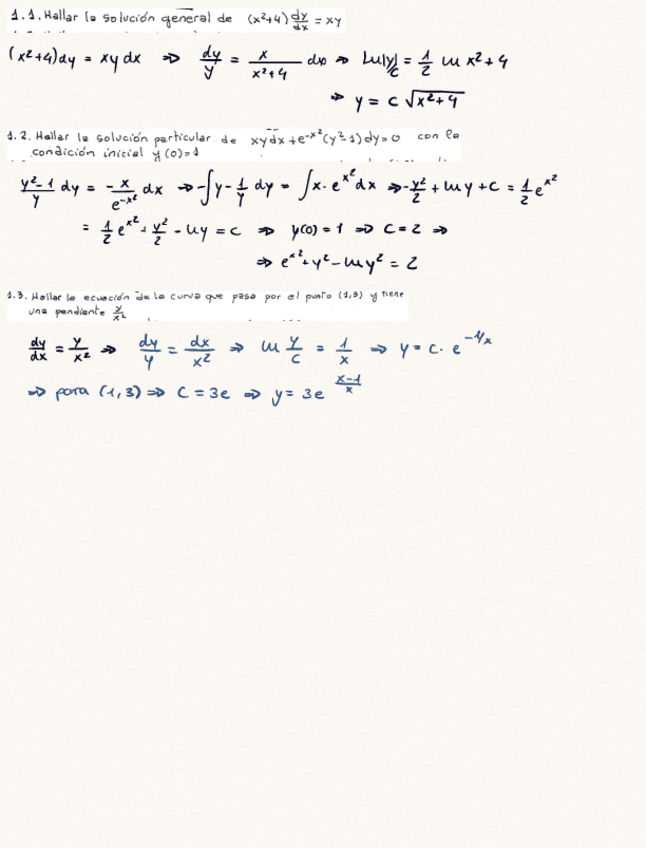 1.1. Hallar la solución general de (x²+4) dy/dx = xy
(x²+4)dy = xy dx ⇒ dy/y = x/(x²+4) dx ⇒ Ln|y|/c = 1/2 ln x²+4
⇒ y = c √(x²+4)
1.2. Hallar la solución particular de xydx + e^(-x²)(y²-1)dy=0 con la
condición inicial y(0)=1
(y²-1)/y dy = -x/e^(-x²) dx ⇒ -∫y - 1/y dy = ∫x·e^(x²) dx ⇒ -y²/2 + ln y + c = 1/2 e^(x²)
= 1/2 e^(x²) + y²/2 - ln y = c ⇒ y(0) = 1 ⇒ C = 2 ⇒
⇒ e^(x²) + y² - ln y² = 2
1.3. Hallar la ecuación de la curva que pasa por el punto (1,3) y tiene
una pendiente y/x²
dy/dx = y/x² ⇒ dy/y = dx/x² ⇒ ln y/c = 1/x ⇒ y = c · e^(-1/x)
⇒ para (1,3) ⇒ C = 3e ⇒ y = 3e^((x-1)/x)